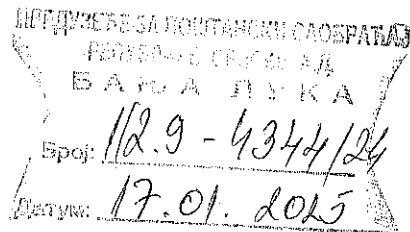 ПРЕДУЗЕЋЕ ЗА ПОШТАНСКИ САОБРАЋАЈ
РЕПУБЛИКЕ СРПСКЕ А.Д.
БАЊА ЛУКА
Број: 1/2.9 - 4344/24
Датум: 17.01. 2025